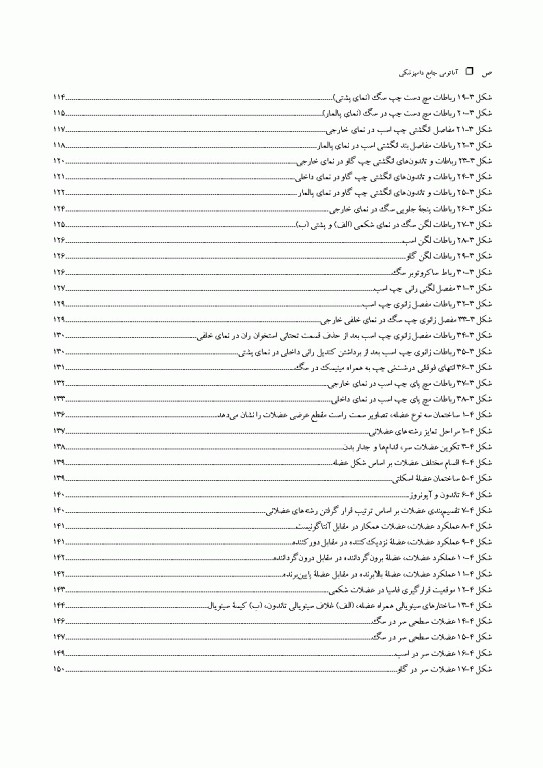 ص ❒ آناتومی جامع دامپزشکی
شکل ۳-۱۹ رباطات مچ دست چپ سگ (نمای پشتی)..........۱۱۴
شکل ۳-۲۰ رباطات مچ دست چپ در سگ (نمای پالمار)..........۱۱۵
شکل ۳-۲۱ مفاصل انگشتی چپ اسب در نمای خارجی..........۱۱۷
شکل ۳-۲۲ رباطات مفاصل بند انگشتی اسب در نمای پالمار..........۱۱۸
شکل ۳-۲۳ رباطات و تاندون‌های انگشتی چپ گاو در نمای خارجی..........۱۲۰
شکل ۳-۲۴ رباطات و تاندون‌های انگشتی چپ گاو در نمای داخلی..........۱۲۱
شکل ۳-۲۵ رباطات و تاندون‌های انگشتی چپ گاو در نمای پالمار..........۱۲۲
شکل ۳-۲۶ رباطات پنجهٔ جلویی سگ در نمای خارجی..........۱۲۴
شکل ۳-۲۷ رباطات لگن سگ در نمای شکمی (الف) و پشتی (ب)..........۱۲۵
شکل ۳-۲۸ رباطات لگن اسب..........۱۲۶
شکل ۳-۲۹ رباطات لگن گاو..........۱۲۶
شکل ۳-۳۰ رباط ساکروتوبر سگ..........۱۲۶
شکل ۳-۳۱ مفصل لگنی رانی چپ اسب..........۱۲۷
شکل ۳-۳۲ رباطات مفصل زانوی چپ اسب..........۱۲۹
شکل ۳-۳۳ مفصل زانوی چپ سگ در نمای خلفی خارجی..........۱۲۹
شکل ۳-۳۴ رباطات مفصل زانوی چپ اسب بعد از حذف قسمت تحتانی استخوان ران در نمای خلفی..........۱۳۰
شکل ۳-۳۵ رباطات زانوی چپ اسب بعد از برداشتن کندیل رانی داخلی در نمای پشتی..........۱۳۰
شکل ۳-۳۶ انتهای فوقانی درشت‌نی چپ به همراه مینیسک در سگ..........۱۳۱
شکل ۳-۳۷ رباطات مچ پای چپ اسب در نمای خارجی..........۱۳۲
شکل ۳-۳۸ رباطات مچ پای چپ اسب در نمای داخلی..........۱۳۳
شکل ۴-۱ ساختمان سه نوع عضله، تصاویر سمت راست مقطع عرضی عضلات را نشان می‌دهد..........۱۳۶
شکل ۴-۲ مراحل تمایز رشته‌های عضلانی..........۱۳۷
شکل ۴-۳ تکوین عضلات سر، اندام‌ها و جدار بدن..........۱۳۸
شکل ۴-۴ اقسام مختلف عضلات بر اساس شکل عضله..........۱۳۹
شکل ۴-۵ ساختمان عضلهٔ اسکلتی..........۱۳۹
شکل ۴-۶ تاندون و آپونروز..........۱۴۰
شکل ۴-۷ تقسیم‌بندی عضلات بر اساس ترتیب قرار گرفتن رشته‌های عضلانی..........۱۴۰
شکل ۴-۸ عملکرد عضلات، عضلات همکار در مقابل آنتاگونیست..........۱۴۱
شکل ۴-۹ عملکرد عضلات، عضلهٔ نزدیک‌کننده در مقابل دورکننده..........۱۴۱
شکل ۴-۱۰ عملکرد عضلات، عضلهٔ برون‌گرداننده در مقابل درون‌گرداننده..........۱۴۲
شکل ۴-۱۱ عملکرد عضلات، عضلهٔ بالابرنده در مقابل عضلهٔ پایین‌برنده..........۱۴۲
شکل ۴-۱۲ موقعیت قرارگیری فاسیا در عضلات شکمی..........۱۴۳
شکل ۴-۱۳ ساختارهای سینویالی همراه عضله، (الف) غلاف سینویالی تاندون، (ب) کیسهٔ سینویال..........۱۴۴
شکل ۴-۱۴ عضلات سطحی سر در سگ..........۱۴۶
شکل ۴-۱۵ عضلات سطحی سر در سگ..........۱۴۷
شکل ۴-۱۶ عضلات سر در اسب..........۱۴۹
شکل ۴-۱۷ عضلات سر در گاو..........۱۵۰